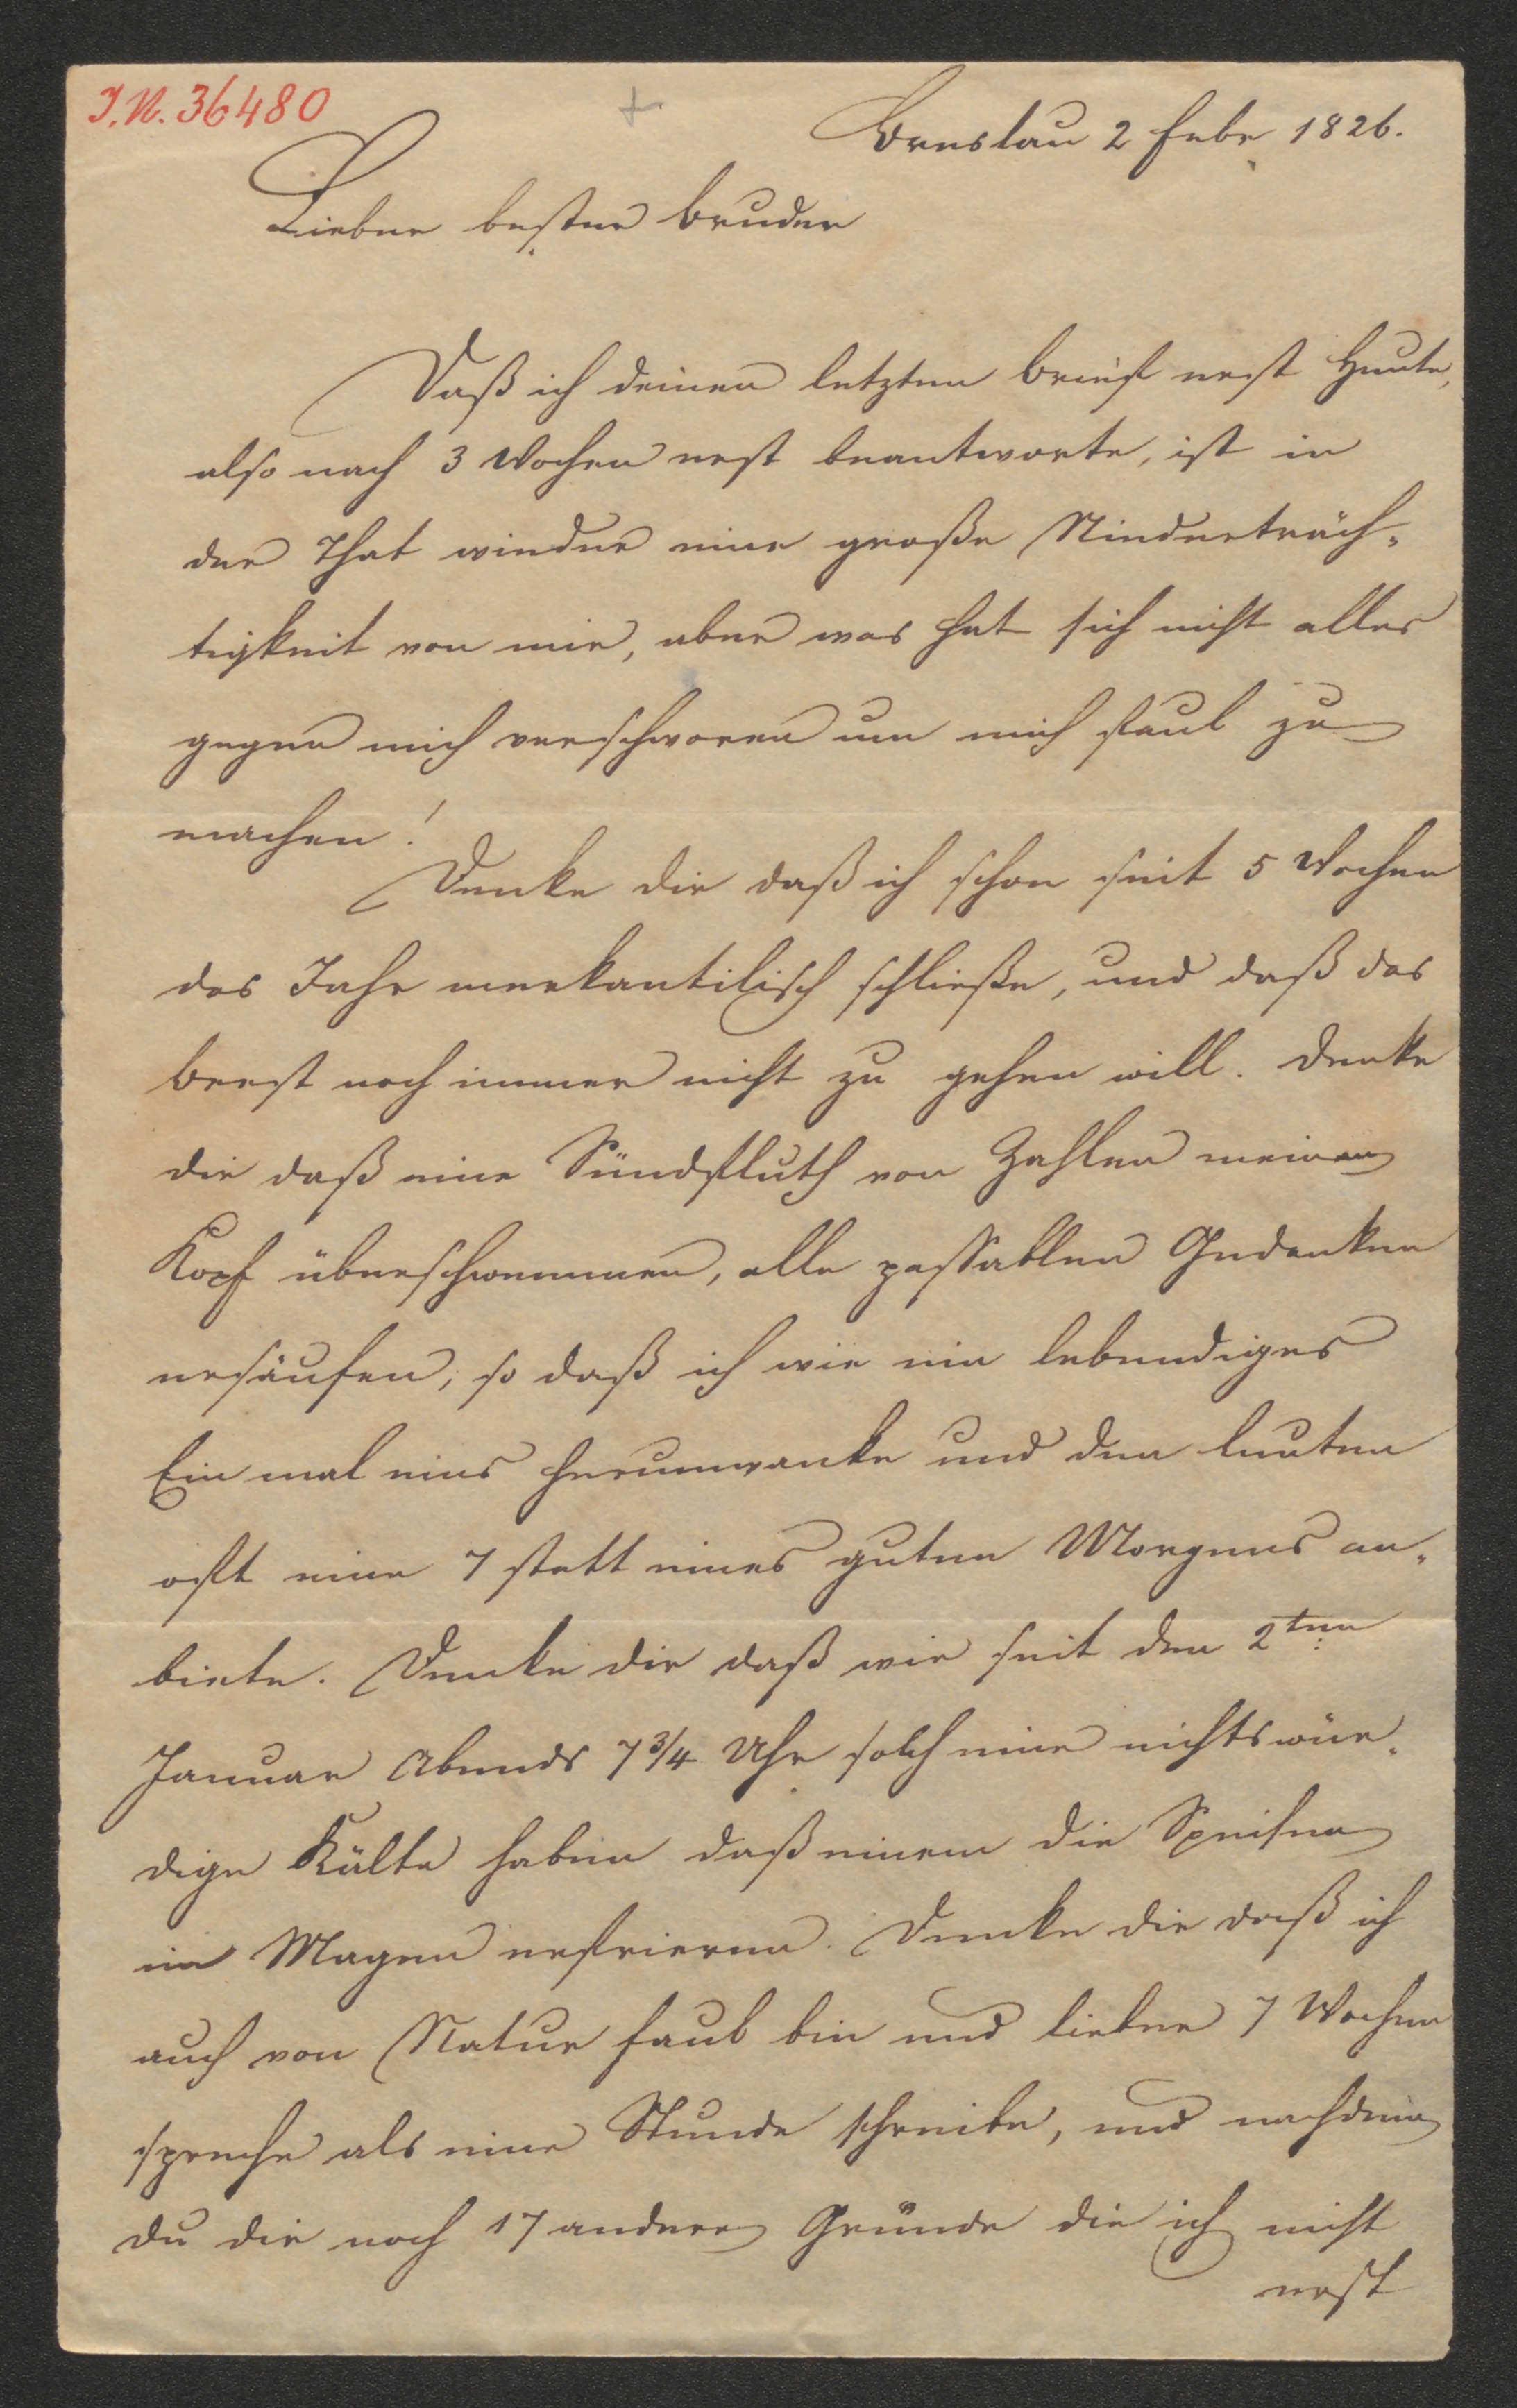 J.N. 36480
Breslau 2 Febr 1826.
Lieber bester Bruder
Daß ich deinen letzten Brief erst Heute,
also nach 3 Wochen erst beantworte, ist in
der That wieder eine große Niederträch-
tigkeit von mir, aber was hat sich nicht alles
gegen mich verschworen um mich faul zu
machen!
Denke dir daß ich schon seit 5 Wochen
das Jahr merkantilisch schließe, und daß das
Beest noch immer nicht zu gehen will. Denke
dir daß eine Sündfluth von Zahlen meinen
Kopf überschwemmen, alle passablen Gedanken
ersäufen, so daß ich wie ein lebendiges
Ein mal eins herumwanke und den Leuten
oft eine 7 statt eines guten Morgens an-
biete. Denke dir daß wir seit den 2ten
Januar Abends 7 3/4 Uhr solch eine nichtswür-
dige Kälte haben daß einem die Speisen
im Magen erfrieren. Denke dir daß ich
auch von Natur faul bin und lieber 7 Wochen
spreche als eine Stunde schreibe, und nachdem
du dir noch 17 andere Gründe die ich nicht
erst